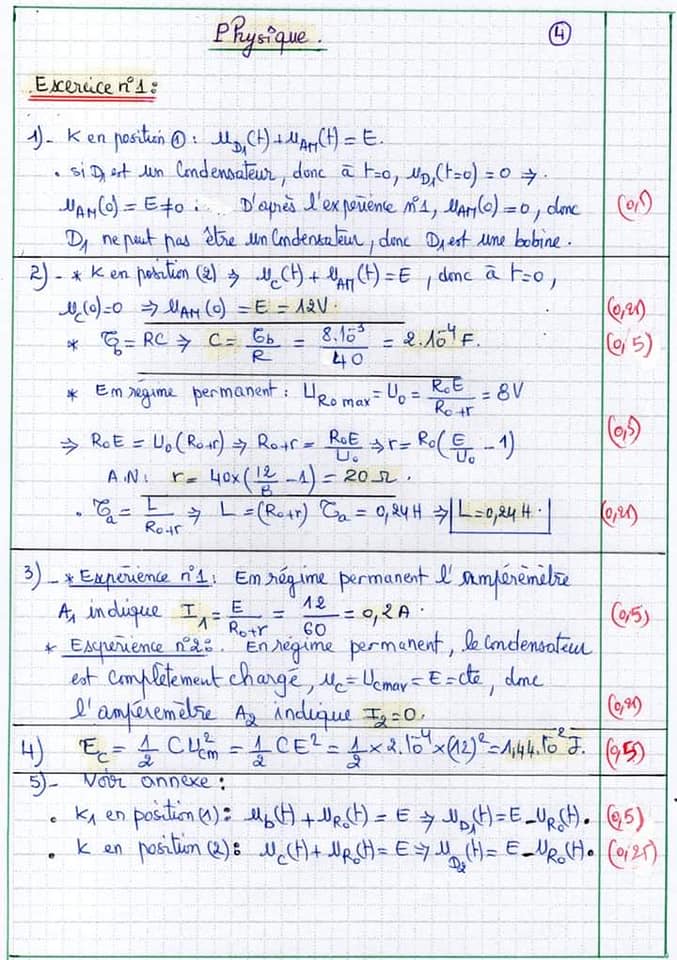 Physique.
4
Excercice n°1:
1)- K en position ①: u_D1(t)+u_AM(t) = E.
• si D1 est un Condensateur, donc à t=0, u_D1(t=0) = 0 ⇒.
u_AM(0) = E≠0 : .. D'après l'expérience n°1, u_AM(0) = 0, donc
D1 ne peut pas être un Condensateur, donc D1 est une bobine.
2)- * K en position (2) ⇒ u_C(t) + u_AM(t) = E , donc à t=0,
u_C(0)=0 ⇒ u_AM(0) = E = 12V. (0,25)
* τ_b = RC ⇒ C = τ_b/R = 8.10^-3/40 = 2.10^-4 F. (0,5)
* En régime permanent : U_R0 max = U_0 = R_0E/(R_0+r) = 8V
⇒ R_0E = U_0(R_0+r) ⇒ R_0+r = R_0E/U_0 ⇒ r = R_0(E/U_0 - 1) (0,5)
A.N: r = 40x(12/8 - 1) = 20Ω.
• τ_a = L/(R_0+r) ⇒ L = (R_0+r) τ_a = 0,24H ⇒ L=0,24H. (0,25)
3)- * Expérience n°1: En régime permanent l'ampérèmètre
A1 indique I_1 = E/(R_0+r) = 12/60 = 0,2A. (0,5)
* Expérience n°2: En régime permanent, le condensateur
est complètement chargé, u_C = U_Cmax = E = cte, donc
l'ampéremètre A2 indique I_2=0. (0,25)
4) E_C = 1/2 CU²_cm = 1/2 CE² = 1/2 x 2.10^-4 x (12)² = 1,44.10^-2 J. (0,5)
5)- Voir annexe :
• K1 en position (1): u_b(t) + u_R0(t) = E ⇒ u_D1(t) = E - u_R0(t). (0,5)
• K en position (2): u_C(t) + u_R0(t) = E ⇒ u_D2(t) = E - u_R0(t). (0,25)